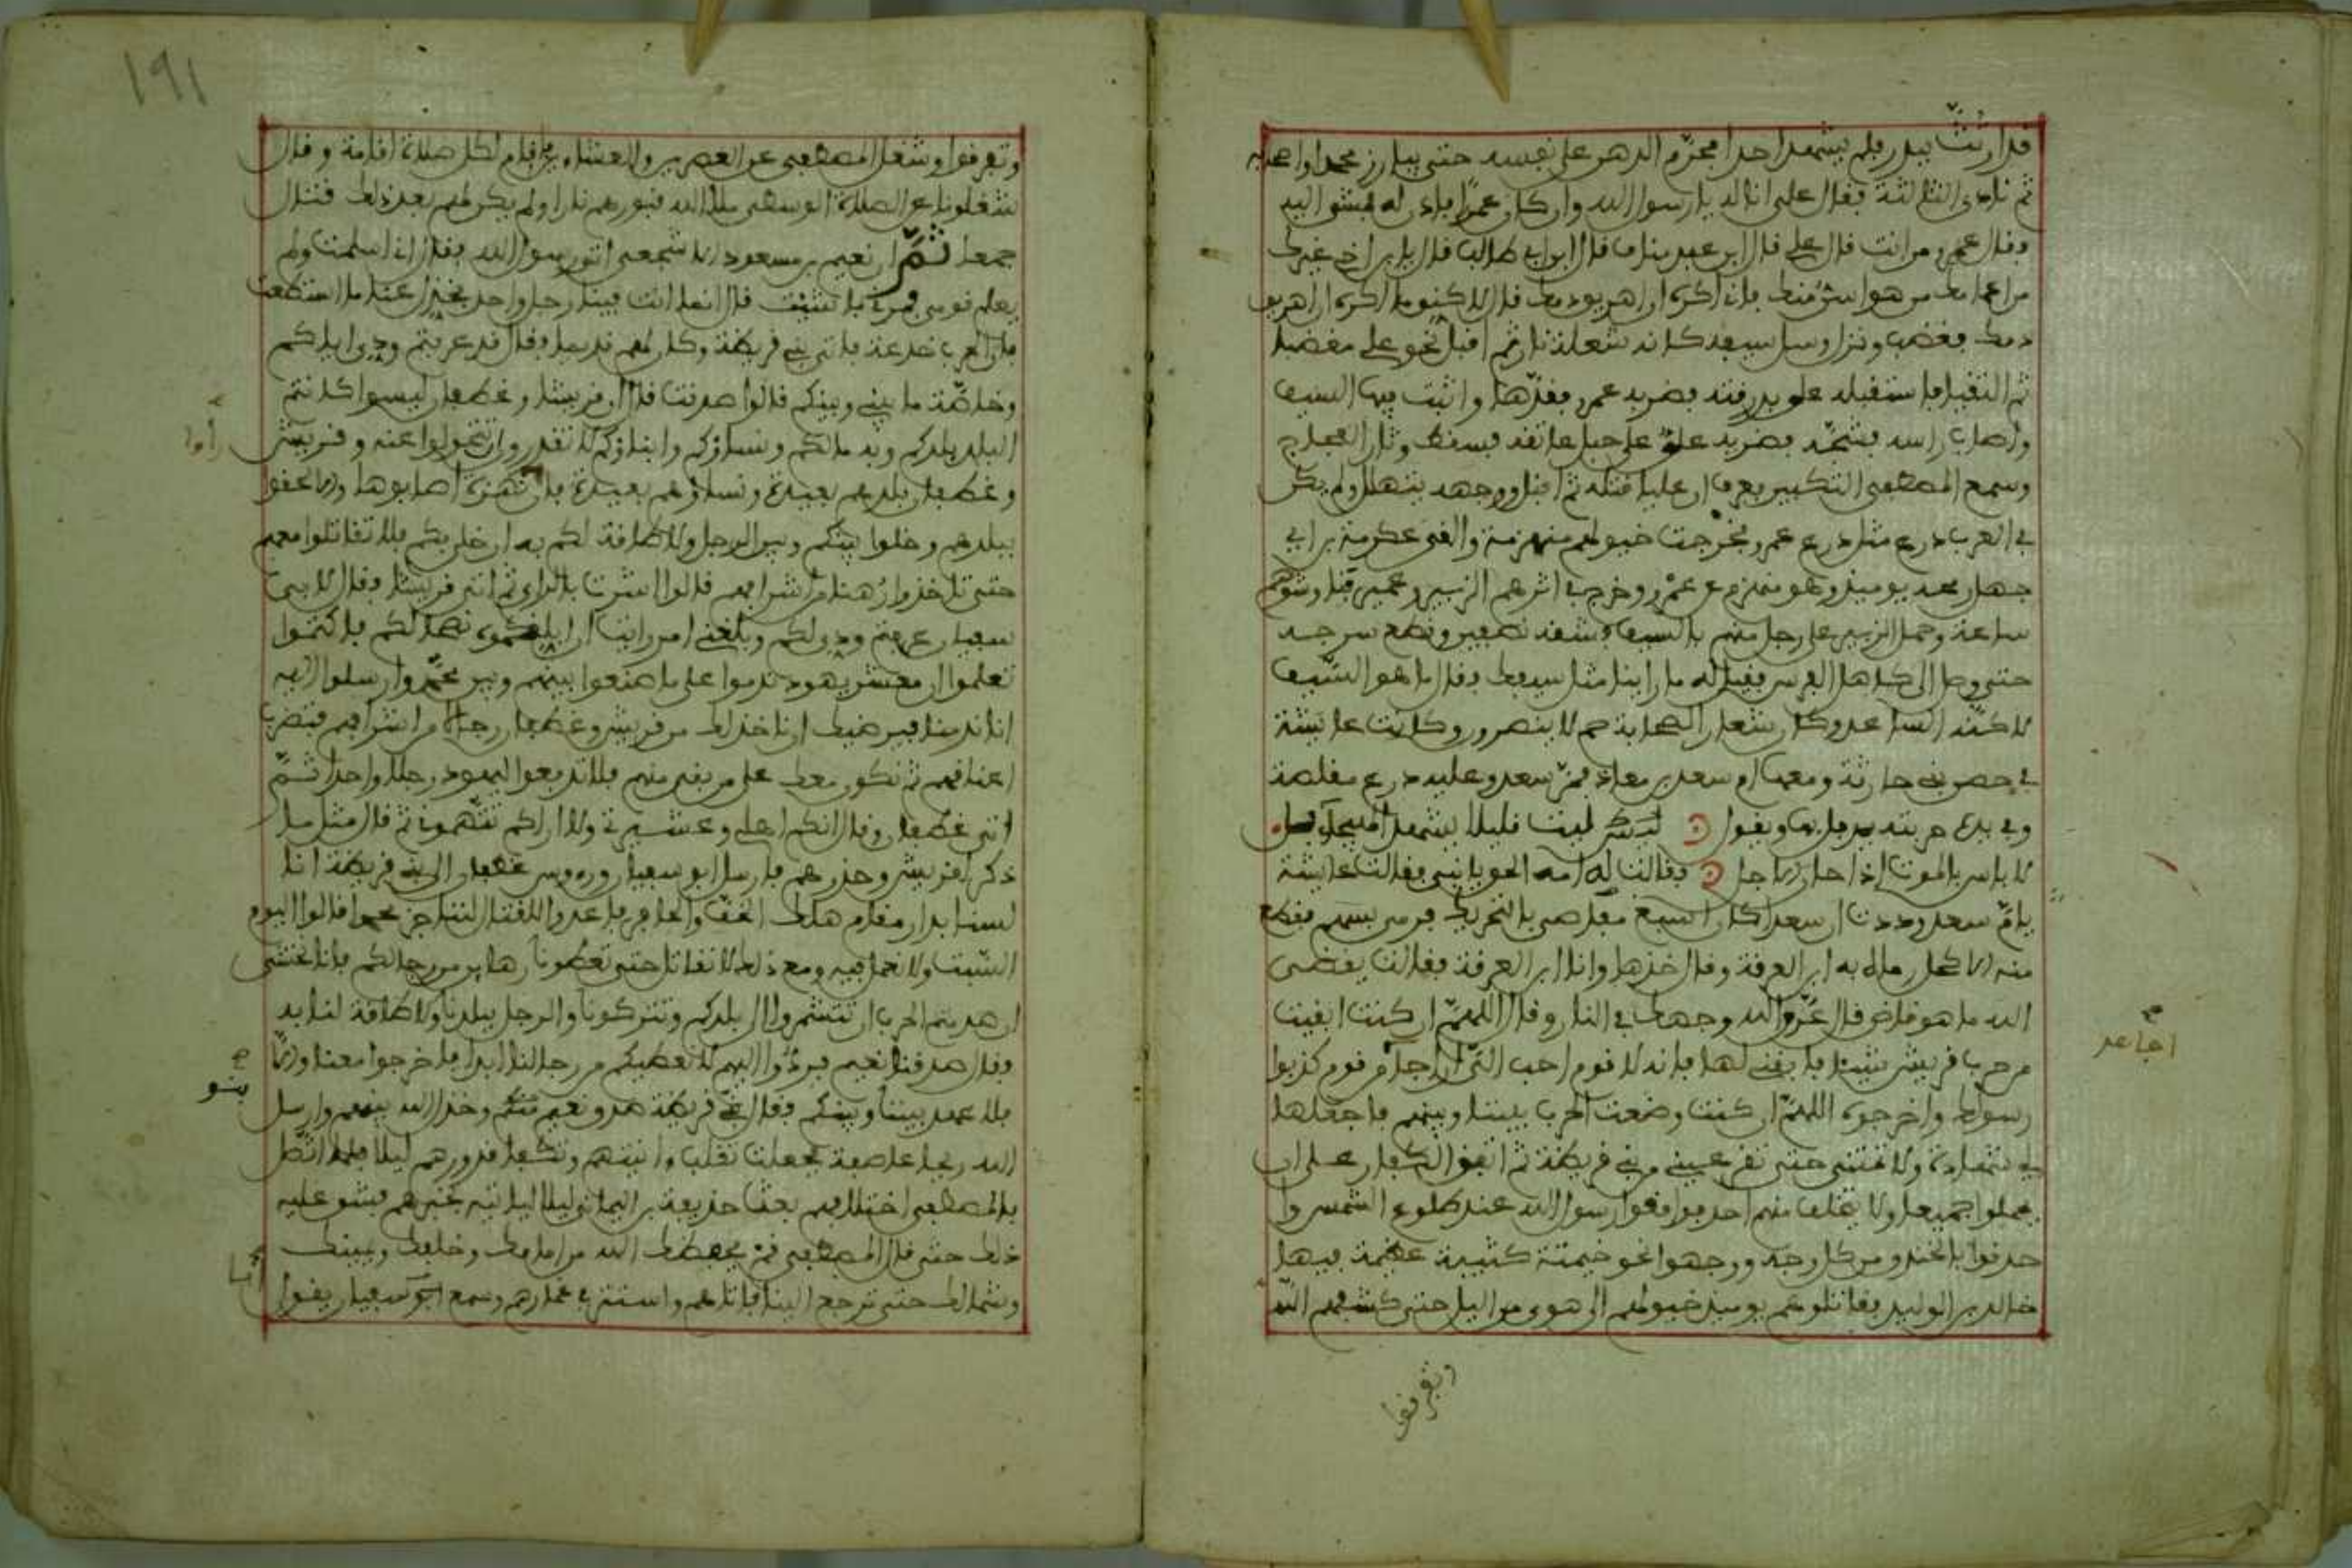 قد ارتث ببدر فلم يشهد احدا فحرم الدهن على نفسه حتى يبارز محمدا واصحابه
ثم نادى الثالثة فقال علي انا له يا رسول الله وان كان عمرا فاذن له فمشى اليه
وقال عمرو من انت قال علي قال ابن عبد مناف قال ابن ابي طالب قال يابن اخي غيرك
من اعمامك من هو اسن منك فاني اكره ان اهريق دمك قال لاكني ما اكره ان اهريق
دمك فغضب ونزل وسل سيفه كانه شعلة نار ثم اقبل نحو علي مغضبا
ثم التقيا فاستقبله علي بدرقته فضربه عمرو فقدها واثبت فيها السيف
واصاب راسه فشجه فضربه علي على حبل عاتقه فسقط وثار العجاج
وسمع المصطفى التكبير فعرف ان عليا قتله ثم اقبل ووجهه يتهلل ولم يكن
في العرب درع مثل درع عمرو فخرجت خيولهم منهزمة والقى عكرمة بن ابي
جهل رمحه يوميذ وهو منهزم عن عمرو وخرج في اثرهم الزبير وعمر
ساعة وحمل الزبير على رجل منهم بالسيف فشقه نصفين وقطع سرجه
حتى وصل الى كاهل الفرس فقيل له ما راينا مثل سيفك فقال ما هو السيف
لاكنه الساعد وكان شعار الصحابة حم لا ينصرون وكانت عايشة
في حصن بني حارثة ومعها ام سعد بن معاذ فمر سعد وعليه درع مقلصة
وفي يده حربته يرفل بها ويقول لبث قليلا يشهد الهيجا حمل
لا باس بالموت اذا حان الاجل فقالت له امه الحق يا بني فقالت عايشة
يا ام سعد وددت ان درع سعد كان اسبغ
منه الاكحل رماه به ابن العرقة وقال خذها وانا ابن العرقة فقالت يقضي
الله ما هو قاض قال عرق الله وجهك في النار وقال اللهم ان كنت ابقيت
من حرب قريش شيئا فابقني لها فانه لا قوم احب الي ان اجاهد من قوم كذبوا
رسولك واخرجوه اللهم ان كنت وضعت الحرب بيننا وبينهم فاجعلها
لي شهادة ولا تمتني حتى تقر عيني من بني قريظة ثم اتفق الكفار على ان
يحملوا جميعا ولا يتخلف منهم احد فوافوا رسول الله عند طلوع الشمس وا
حدقوا بالخندق من كل وجه ووجهوا نحو خيمته كتيبة عظيمة فيها
خالد بن الوليد فقاتلوهم يوميذ خيولهم الى هوى من اليل حتى كشفهم الله
وتفرقوا
وتفرقوا وشغل المصطفى عن العصرين والعشاء فاقام لكل صلاة اقامة وقال
شغلونا عن الصلاة الوسطى ملأ الله قبورهم نارا ولم يكن لهم بعد ذلك قتال
جمعا ثم ان نعيم بن مسعود الاشجعي اتى رسول الله فقال اني اسلمت ولم
يعلم قومي فمرني بما شيت قال انما انت فينا رجل واحد فخذل عنا ما استطعت
فان الحرب خدعة فاتى بني قريظة وكان لهم نديما فقال قد عرفتم ودي اياكم
وخاصة ما بيني وبينكم قالوا صدقت قال ان قريشا وغطفان ليسوا كانتم
البلد بلدكم وبه مالكم ونساؤكم وابناؤكم لا تقدرون ان تحولوا عنه وقريش
وغطفان بلدهم بعيدة ونساؤهم بعيدة فان نهزة اصابوها والا لحقوا
ببلدهم وخلوا بينكم وبين الرجل ولا طاقة لكم به ان خلا بكم فلا تقاتلوا معهم
حتى تاخذوا رهنا من اشرافهم قالوا اشرت بالراي ثم اتى قريشا وقال لابي
سفيان عرفتم ودي لكم وبلغني امر رايت ان ابلغكموه نصحا لكم فاكتموا
تعلموا ان معشر يهود ندموا على ما صنعوا بينهم وبين محمد وارسلوا اليه
انا ندمنا فيرضيك ان ناخذ لك من قريش وغطفان رجالا من اشرافهم فتضرب
اعناقهم ثم نكون معك على من بقي منهم فلا تدفعوا اليهود رجلا واحدا ثم
اتى غطفان وقال انكم اهلي وعشيرتي ولا اراكم تتهموني ثم قال مثل ما
ذكر لقريش وحذرهم فارسل ابو سفيان ورءوس غطفان الى بني قريظة انا
لسنا بدار مقام هلك الخف والحافر فاعدوا للقتال نناجز محمدا قالوا اليوم
السبت ولا نعمل فيه ومع ذلك لا نقاتل حتى تعطونا رهاين من رجالكم فانا نخشى
ان هزمتم الحرب ان تتشمروا الى بلدكم وتتركونا والرجل ببلدنا ولا طاقة لنا به
فقال صدقنا نعيم فردوا اليهم لا نعطيكم من رجالنا ابدا فاخرجوا معنا والا
فلا عهد بيننا وبينكم فقال بنو قريظة صدق نعيم وخذل الله بينهم وارسل
الله ريحا عاصفة فجعلت تقلب وانيتهم وتكفا قدورهم ليلا فلما اتصل
بالمصطفى اختلافهم بعث حذيفة بن اليمان ليلا لياتيه بخبرهم فشق عليه
ذلك حتى قال المصطفى قم يحفظك الله من امامك وخلفك ويمينك
وشمالك حتى ترجع الينا فاتاهم واستتر في غمارهم وسمع ابو سفيان يقول
١٩١
بنو
اجاهد